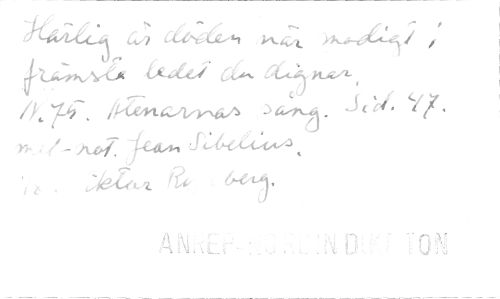 Härlig är döden när modigt i
främsta ledet du dignar,
N. 75. Atenarnas sång. Sid. 47.
not. Jean Sibelius.
berg.
ANREP-NORDIN TON